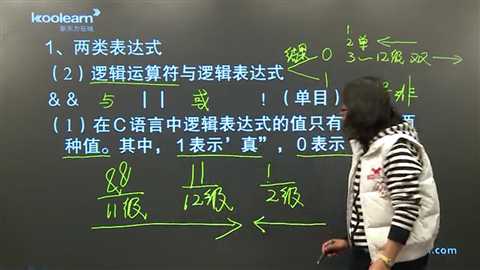 koolearn
新东方在线
1、两类表达式
（2）逻辑运算符与逻辑表达式
结果 0
1
1
2单
3—12级 双
&& 与 || 或 ！（单目） 非
（1）在C语言中逻辑表达式的值只有
种值。其中，1表示'真”，0表示
&& || !
11级 12级 2级
.com